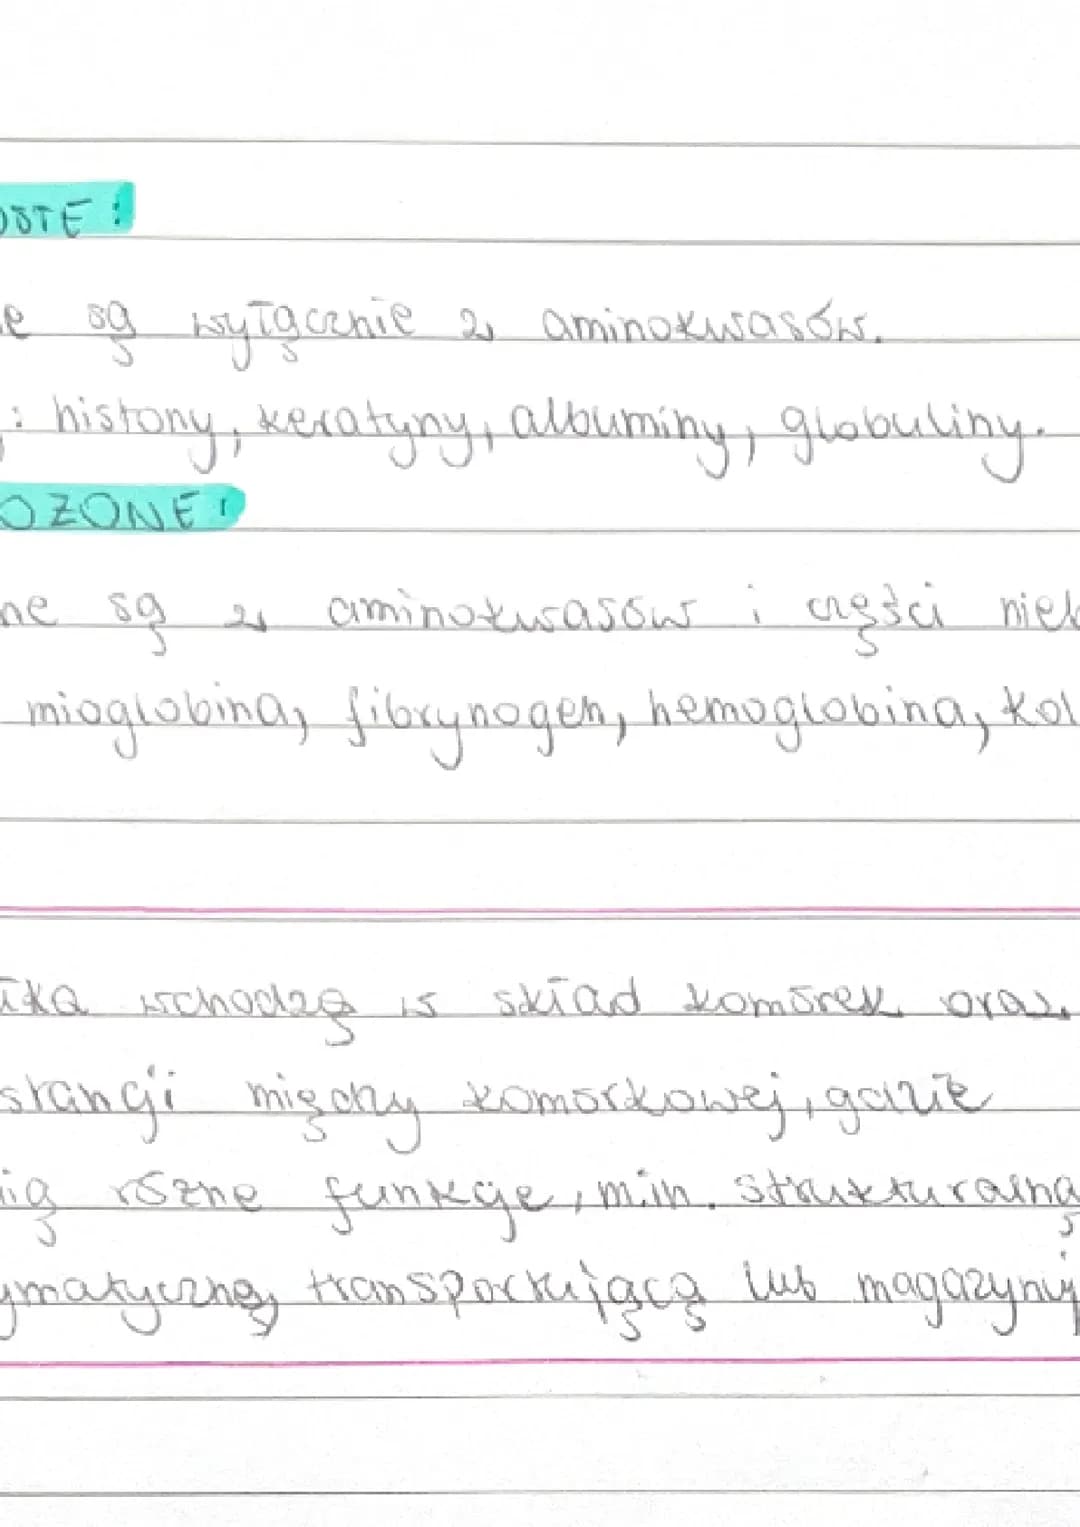 OSTE:
e są wyłącznie z aminokwasów.
: histony, keratyny, albuminy, globuliny.
OZONE:
ne są z aminokwasów i części nieb
mioglobina, fibrynogen, hemoglobina, kol
łka wchodzą w skład komórek oraz
stancji między komórkowej, gdzie
nią różne funkcje, m.in. strukturalną
ymatyczną, transportującą lub magazynuj